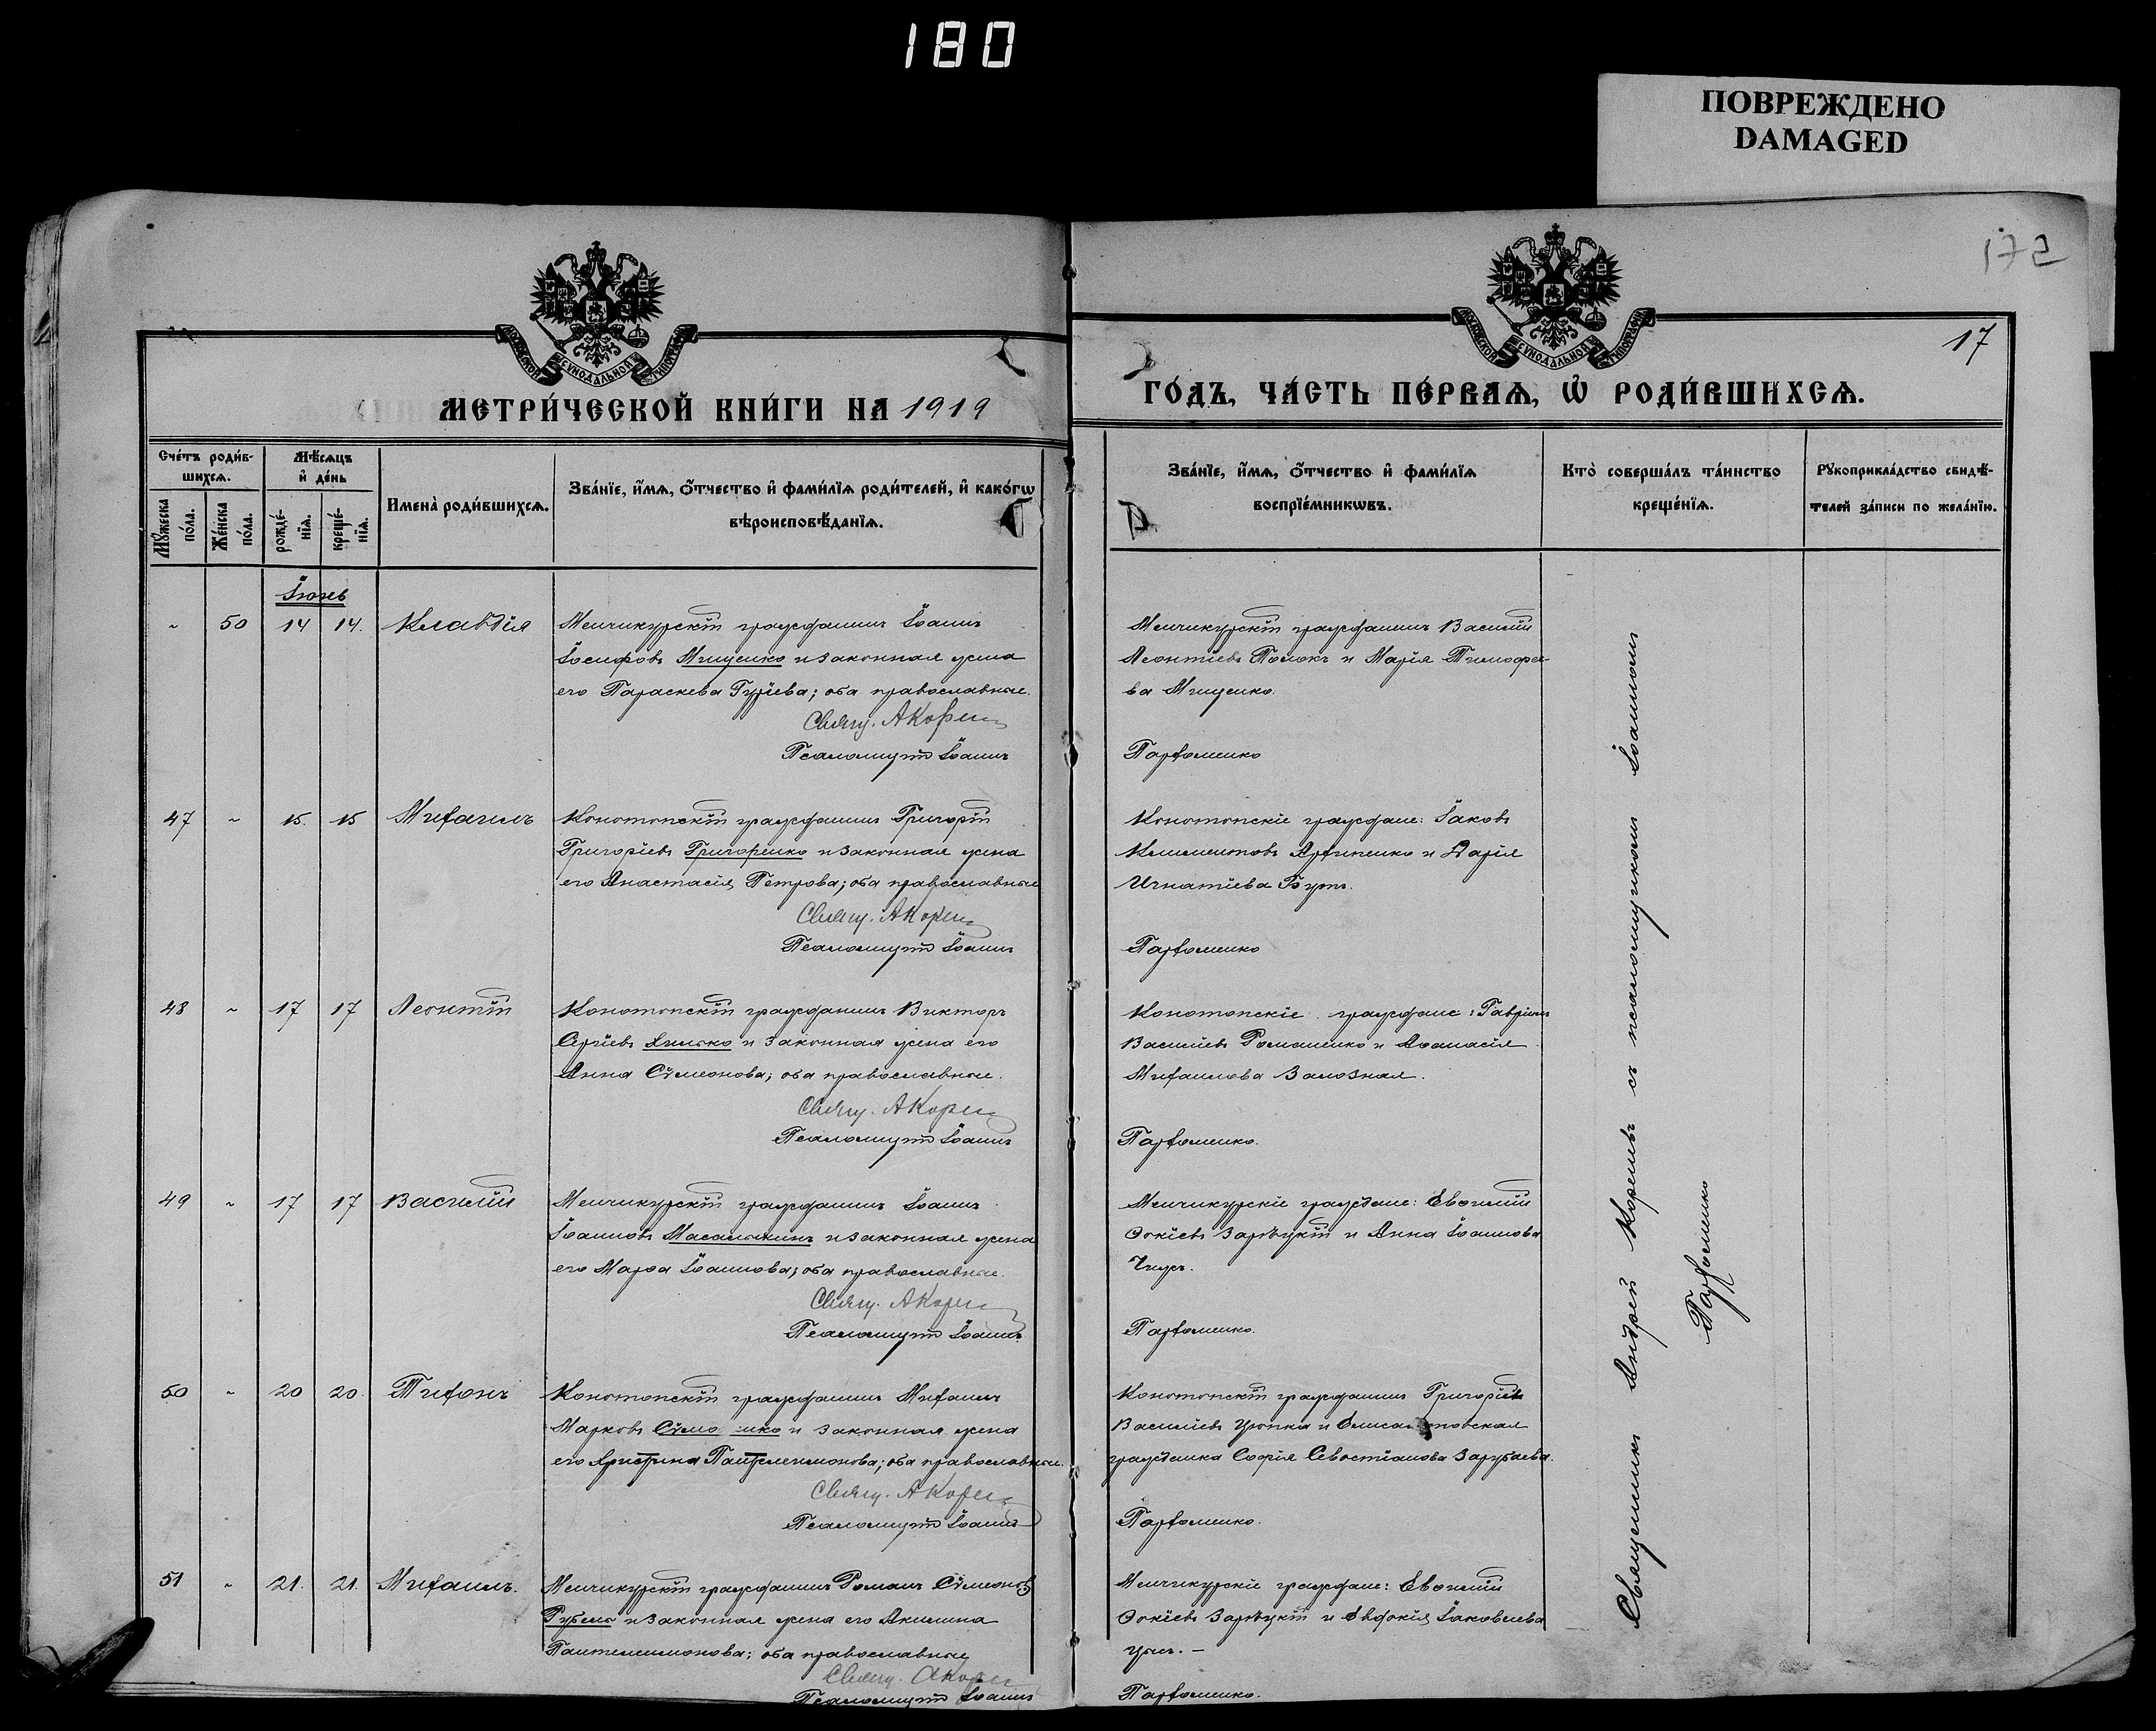 180
ПОВРЕЖДЕНО
DAMAGED
172
17
МЕТРИ́ЧЕСКОЙ КНИ́ГИ НА 1919
ГО́ДЪ, ЧА́СТЬ ПЕ́РВАѦ, Ѽ РОДИ́ВШИХСѦ.
Сче́тъ роди́в-
шихсѧ.
Мꙋ́жеска по́ла.
Же́нска по́ла.
Мѣ́сѧцъ
и҆ де́нь
рожде́-
нїѧ.
креще́-
нїѧ.
Имена̀ роди́вшихсѧ.
Зва́нїе, и҆́мѧ, ѻ҆́тчество и҆ фами́лїѧ роди́телей, и҆ како́гѡ
вѣроисповѣ́данїѧ.
Зва́нїе, и҆́мѧ, ѻ҆́тчество и҆ фами́лїѧ
воспрїе́мникѡвъ.
Кто̀ соверша́лъ та́инство
креще́нїѧ.
Рꙋкоприкла́дство свидѣ́-
телей за́писи по жела́нїю.
Іюнь
" 50 14 14. Клавдія
Менчикурскій гражданинъ Іоаннъ
Іосифовъ Мищенко и законная жена
его Параскева Гуріева; оба православные.
Свящ. А Корен
Псаломщикъ Іоаннъ
Менчикурскій гражданинъ Василій
Леонтіевъ Толокъ и Марія Тимофее-
ва Мищенко.
Парѳоменко
47 " 15. 15 Михаилъ
Конотопскій гражданинъ Григорій
Григоріевъ Григоренко и законная жена
его Анастасія Петрова; оба православные
Свящ. А Корен
Псаломщикъ Іоаннъ
Конотопскіе граждане: Іаковъ
Климентовъ Архипенко и Дарія
Игнатіева Бутъ.
Парѳоменко
48 " 17 17 Леонтій
Конотопскій гражданинъ Викторъ
Сергіевъ Химко и законная жена его
Анна Сѵмеонова; оба православные.
Свящ. А Корен
Псаломщикъ Іоаннъ
Конотопскіе граждане: Гавріилъ
Василіевъ Романенко и Аѳанасія
Михаилова Залозная.
Парѳоменко.
49 " 17 17 Василій
Менчикурскій гражданинъ Іоаннъ
Іоанновъ Масалыкинъ и законная жена
его Марѳа Іоаннова; оба православные.
Свящ. А Корен
Псаломщикъ Іоаннъ
Менчикурскіе граждане: Евѳимій
Ѳокіевъ Зарѣцкій и Анна Іоаннова
Парѳоменко.
50 " 20 20. Тихонъ
Конотопскій гражданинъ Михаилъ
Марковъ Сѵмо нко и законная жена
его Христина Пантелеимонова; оба православные.
Свящ. А Корен
Псаломщикъ Іоаннъ
Конотопскій гражданинъ Григорій
Василіевъ Цюпка и Елиса товская
гражданка Софія Севостіанова Зарубаева.
Парѳоменко.
51 " 21. 21. Михаилъ.
Менчикурскій гражданинъ Романъ Сѵмеоновъ
Рубель и законная жена его Акилина
Пантелеимонова; оба православные
Свящ. А Корен
Псаломщикъ Іоаннъ
Менчикурскіе граждане: Евѳимій
Ѳокіевъ Зарѣцкій и Евдокія Іаковлева
Парѳоменко.
Священникъ Андрей Корень съ псаломщикомъ Іоанномъ
Парѳоменко